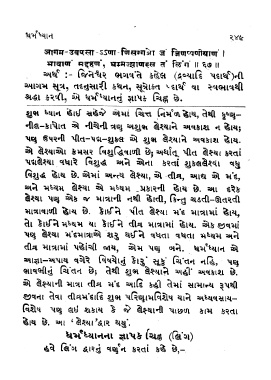 ધર્મધ્યાન ૨૪૯
આગમ-ઉવએસા-ઽઽણા ણિસગ્ગઓ જં જિણપ્પણીયાણં ।
ભાવાણં સદ્દહણં, ધમ્મજ્ઝાણસ્સ તં લિંગં ॥ ૬૭ ॥
અર્થ :- જિનેશ્વર ભગવંતે કહેલ (દ્રવ્યાદિ પદાર્થ)ની
આગમ સૂત્ર, તદનુસારી કથન, સૂત્રોક્ત પદાર્થ વા સ્વભાવથી
શ્રદ્ધા કરવી, એ ધર્મધ્યાનનું જ્ઞાપક ચિહ્ન છે.
શુભ ધ્યાન હોઈ સહેજે એમાં ચિત્ત નિર્મળ હોય, તેથી કૃષ્ણ-
નીલ-કાપોત એ નીચેની ત્રણ અશુભ લેશ્યાને અવકાશ ન હોય;
પણ ઉપરની પીત-પદ્મ-શુકલ એ શુભ લેશ્યાને અવકાશ હોય.
એ લેશ્યાઓ ક્રમસર વિશુદ્ધિવાળી છે. અર્થાત્ પીત લેશ્યા કરતાં
પદ્મલેશ્યા વધારે વિશુદ્ધ અને એના કરતાં શુકલલેશ્યા વધુ
વિશુદ્ધ હોય છે. એમાં અન્ત્ય લેશ્યા, એ તીવ્ર, આદ્ય એ મંદ,
અને મધ્યમ લેશ્યા એ મધ્યમ પ્રકારની હોય છે. આ દરેક
લેશ્યા પણ એક જ માત્રાની નથી હોતી, કિન્તુ ચડતી-ઊતરતી
માત્રાવાળી હોય છે. કોઈને પીત લેશ્યા મંદ માત્રામાં હોય,
તો કોઈને મધ્યમ યા કોઈને તીવ્ર માત્રામાં હોય. એક જીવમાં
પણ લેશ્યા મંદમાત્રાએ શરૂ થઈને વધતા વધતા મધ્યમ અને
તીવ્ર માત્રામાં પહોંચી જાય, એમ પણ બને. ધર્મધ્યાન એ
આજ્ઞા-અપાય વગેરે વિષયોનું કોરું સૂકું ચિંતન નહિ, પણ
ભાવભીનું ચિંતન છે; તેથી શુભ લેશ્યાને અહીં અવકાશ છે.
એ લેશ્યાની માત્રા તીવ્ર મંદ આદિ કહી તેમાં સામાન્ય રૂપથી
જીવના તેવા તીવ્રમંદાદિ શુભ પરિણામવિશેષ યાને અધ્યવસાય-
વિશેષ પણ લઈ શકાય કે જે લેશ્યાની પાછળ કામ કરતા
હોય છે. આ ‘લેશ્યા’દ્વાર થયું.
ધર્મધ્યાનના જ્ઞાપક ચિહ્ન (લિંગ)
હવે લિંગ દ્વારનું વર્ણન કરતાં કહે છે,-